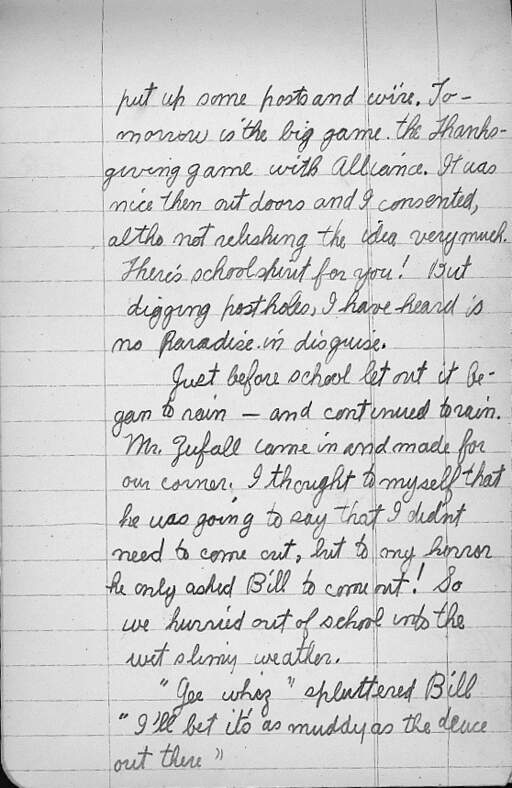 put up some posts and wire. To-
morrow is the big game. the Thanks-
giving game with Alliance. It was
nice then out doors and I consented,
altho not relishing the idea very much.
There's school spirit for you! But
digging post holes, I have heard is
no Paradise in disguise.
Just before school let out it be-
gan to rain — and continued to rain.
Mr. Zufall came in and made for
our corner. I thought to myself that
he was going to say that I didn't
need to come out, but to my horror
he only asked Bill to come out! So
we hurried out of school into the
wet slimy weather.
"Gee whiz" spluttered Bill
"I'll bet it's as muddy as the deuce
out there"